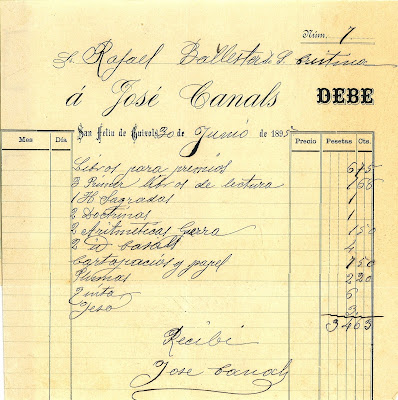 Núm. 7
Sr. Rafael Ballester de S. Cristina
á José Canals DEBE
San Feliu de Guixols 30 de Junio de 1895
Mes Día Precio Pesetas Cts.
Libros para premios 6 75
3 Primer libros de lectura 1 66
1 H Sagradas 1
2 Doctrinas 1
2 Aritmeticas Guerra 1 50
2 id Casals 4
Cartapacios y papel 7 50
Plumas 2 20
Tinta 6
Yeso 3
34 63
Recibí
José Canals